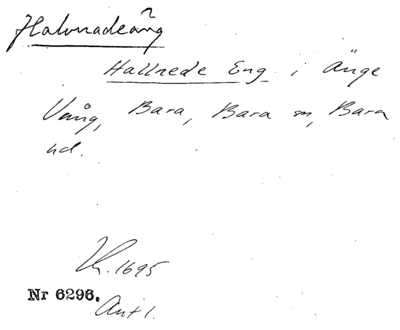 Halvnadeäng
Hallnede Eng i Änge
Vång, Bara, Bara sn, Bara
hd.
K. 1695
Nr 6296.
Ant 1.